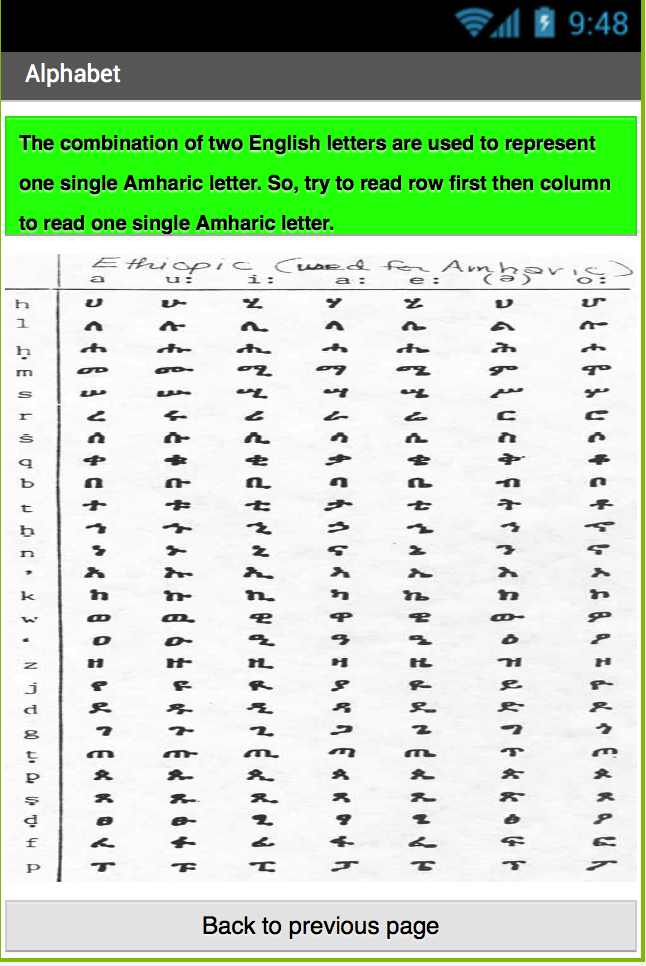 9:48
Alphabet
The combination of two English letters are used to represent
one single Amharic letter. So, try to read row first then column
to read one single Amharic letter.
Ethiopic (used for Amharic)
a u: i: a: e: (ə) o:
h ሀ ሁ ሂ ሃ ሄ ህ ሆ
l ለ ሉ ሊ ላ ሌ ል ሎ
ḥ ሐ ሑ ሒ ሓ ሔ ሕ ሖ
m መ ሙ ሚ ማ ሜ ም ሞ
s ሠ ሡ ሢ ሣ ሤ ሥ ሦ
r ረ ሩ ሪ ራ ሬ ር ሮ
š ሰ ሱ ሲ ሳ ሴ ስ ሶ
q ቀ ቁ ቂ ቃ ቄ ቅ ቆ
b በ ቡ ቢ ባ ቤ ብ ቦ
t ተ ቱ ቲ ታ ቴ ት ቶ
ḫ ኀ ኁ ኂ ኃ ኄ ኅ ኆ
n ነ ኑ ኒ ና ኔ ን ኖ
ʾ አ ኡ ኢ ኣ ኤ እ ኦ
k ከ ኩ ኪ ካ ኬ ክ ኮ
w ወ ዉ ዊ ዋ ዌ ው ዎ
ʿ ዐ ዑ ዒ ዓ ዔ ዕ ዖ
z ዘ ዙ ዚ ዛ ዜ ዝ ዞ
j የ ዩ ዪ ያ ዬ ይ ዮ
d ደ ዱ ዲ ዳ ዴ ድ ዶ
g ገ ጉ ጊ ጋ ጌ ግ ጎ
ṭ ጠ ጡ ጢ ጣ ጤ ጥ ጦ
p̣ ጰ ጱ ጲ ጳ ጴ ጵ ጶ
ṣ ጸ ጹ ጺ ጻ ጼ ጽ ጾ
ḍ ፀ ፁ ፂ ፃ ፄ ፅ ፆ
f ፈ ፉ ፊ ፋ ፌ ፍ ፎ
p ፐ ፑ ፒ ፓ ፔ ፕ ፖ
Back to previous page